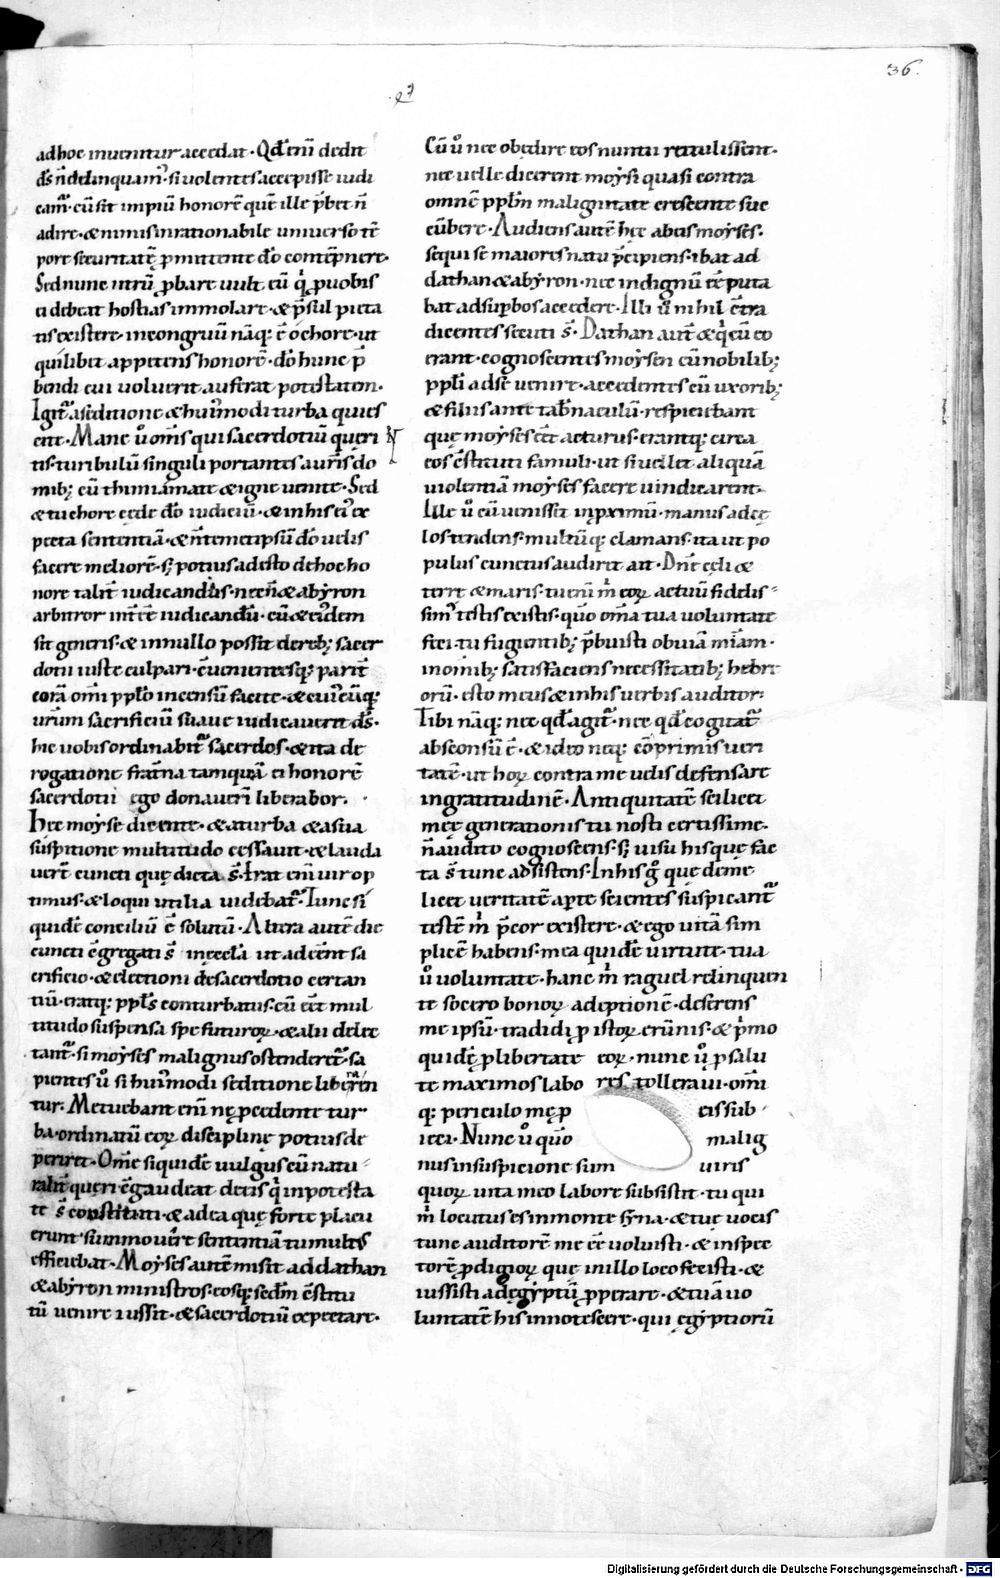 36.
adhoc inuenitur accedat. Qđ eni dedit
ds n̄ delinquam̄. si uolentes accepisse iudi
cam̄. cū sit impiū honorē quē ille p̄bet n̄
adire. & nimis inrationabile uniuerso tē
pore securitatē ꝑmittente dō contēpnere.
Sed nunc utrū ꝓbare uult cū q̄ ꝓ uobis
ei debeat hostias immolare. & p̄sul pieta
tis existere. incongruū nāq; ē ó chore. ut
quilibet appetens honorē. dō hunc p̄
bendi cui uoluerit auferat potestatem.
Igit̄ a seditione & hui᷒modi turba quies
cite. Mane ů om̄s qui sacerdotiū quęri
tis. turibulū singuli portantes aufris do
mib; cū thimiamate & igne uenite. Sed
& tu chore cęde dō iudiciū. & in his ei᷒ ex
pecta sententiā. & n̄ temetipsū dō uelis
facere meliorē. s; potius adesto de hoc ho
nore talit̄ iudicandus. nec n̄ & abyron
arbitror int̄ ēē iudicandū. cū & ei᷒dem
sit generis. & in nullo possit de reb; sacer
dotii iuste culpari. c̄uenientesq; parit̄
corā om̄i pplo incensū facite. & cui᷒cūq;
urm̄ sacrificiū suaue iudicauerit ds̄.
hic uobis ordinabit̄ sacerdos. & ita de
rogatione frat̄na tamquā ei honorē
sacerdotii ego donauerī liberabor.
Hec moyse dicente. & a turba & a sua
suspitione multitudo cessauit. & lauda
uert̄ cuncti quę dicta s̄. Erat eni uir op
timus. & loqui utilia uidebat̄. Tunc si
quidē conciliū ē solutū. Altera autē die
cuncti c̄gregati s̄ in ęccla ut adēent sa
crificio. & electioni de sacerdotio certan
tiū. eratq; ppls conturbatus. cū ēēt mul
titudo suspensa spe futuroꝝ. & alii delec
tant̄. si moyses malignus ostenderet̄. sa
pientes ů si hui᷒modi seditione liberen
tur. Metuebant eni nę ꝓcedente tur
ba. ordinatū eoꝝ disciplinę potius de
periret. Om̄e siquidē uulgus cū natu
ralit̄ queri c̄gaudeat de eis q̄ in potesta
te s̄ constituti. & ad ea quę forte placu
erunt summouēre sententiā tumultus
efficiebat. Moyses autē misit ad dathan
& abyron ministros. eosq; scdm̄ c̄stitu
tū uenire iussit. & sacerdotiū expectare.
Cū ů nec obędire eos nuntii retulissent.
nec uelle dicerent moysi quasi contra
omnē pplm̄ malignitate crescente suc
cūbere. Audiens autē hęc ab eis moyses.
sequi se maiores natu p̄cipiens. ibat ad
dathan & abyron. nec indignū ēē puta
bat ad supbos accedere. Illi ů nihil c̄tra
dicentes secuti s̄. Dathan aut̄ & q̄ cū eo
erant. cognoscentes moysen cū nobilib;
ppli ad se uenire. accedentes cū uxorib;
& filiis ante tab̄naculū. respiciebant
quę moyses ēēt acturus. erantq; circa
eos c̄stituti famuli. ut si uellet aliquā
uiolentiā moyses facere uindicarent.
Ille ů cū uenisset in ꝓximū. manus ad cę
los tendens. multūq; clamans. ita ut po
pulus cunctus audiret ait. Dnē cęli &
terrę & maris. tu eni m̄ eoꝝ actuū fidelis-
sim᷒ testis existis. quō om̄a tua uoluntate
feci. tu fugientib; p̄buisti obuiā miām.
in om̄ib; satisfaciens necessitatib; hebre
orū. esto meus & in his uerbis auditor.
Tibi nāq; nec qđ agit̄. nec qđ cogitat̄
absconsū ē. & ideo neq; cōprimis ueri
tatē. ut hoꝝ contra me uelis defensare
ingratitudinē. Antiquitatē scilicet
meę generationis tu nosti certissime.
n̄ auditu cognoscens. s; uisu hisque fac
ta s̄ tunc adsistens. In his ḡ que de me
licet ueritatē aperte scientes suspicant̄
testē m̄ p̄cor existere. & ego uitā sim
plicē habens. mea quidē uirtute. tua
ů uoluntate. hanc m̄ raguel relinquen
te socero bonoꝝ adeptionē. deserens
me ipsū. tradidi ꝓ istoꝝ erūnis. & p̄mo
quidē ꝓ libertate eoꝝ. nunc ů ꝓ salu
te maximos labores tolleraui. om̄i
q; periculo me ꝓ eis sub
ieci. Nunc ů quō malig
nus in suspicione sum uiris
quoꝝ uita meo labore subsistit. tu qui
m̄ locutus es in monte syna. & tuę uocis
tunc auditorē me ēē uoluisti. & inspec
torē ꝓdigioꝝ que in illo loco fecisti. &
iussisti ad ęgyptū ꝓperare. & tuā uo
luntatē his innotescere. qui ęgyptiorū
Digitalisierung gefördert durch die Deutsche Forschungsgemeinschaft - DFG